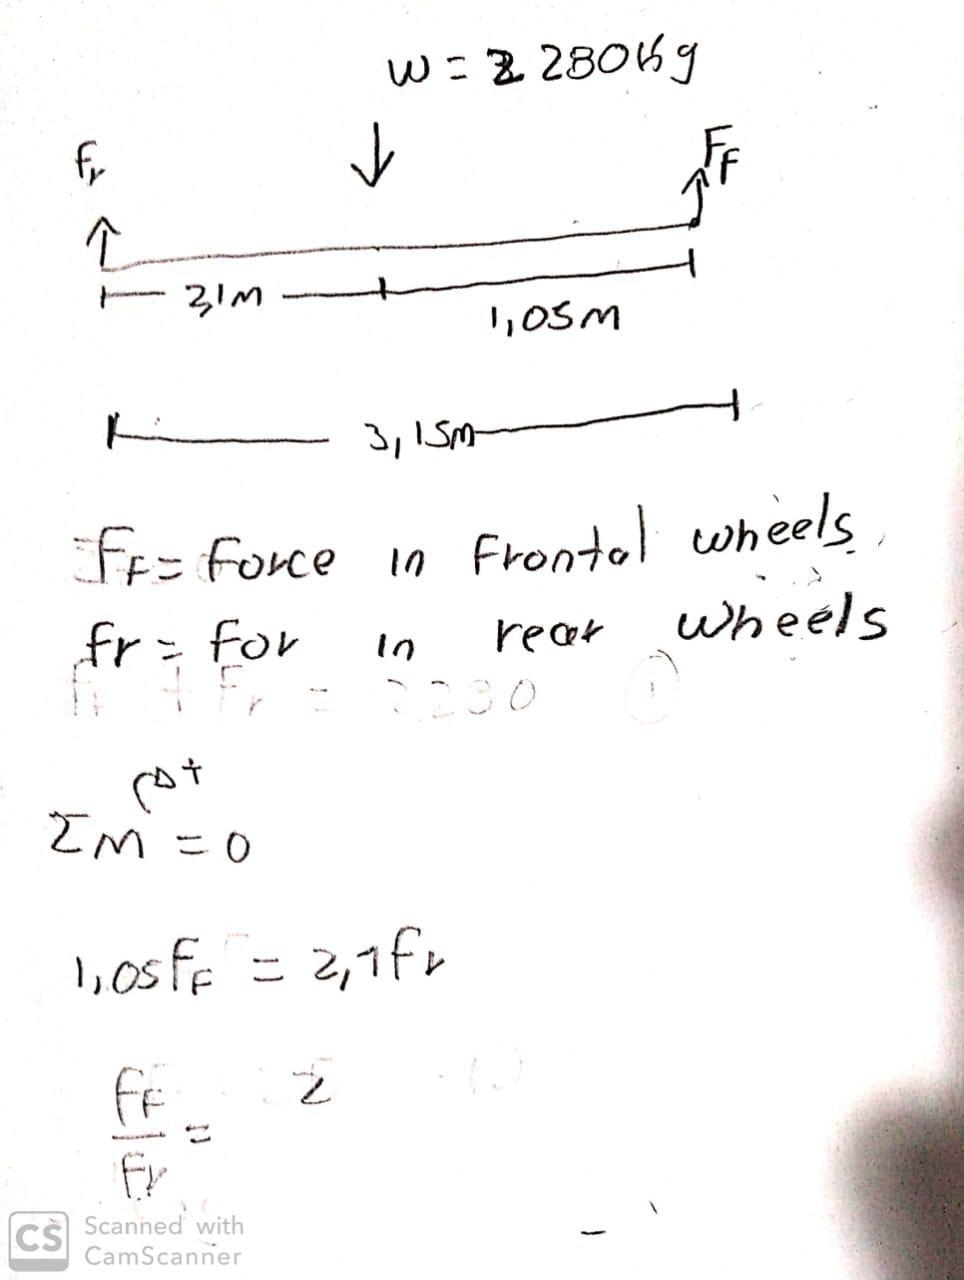 W = 2 280Kg
Fr
FF
2,1M
1,05M
3,15m
FF = force in Frontal wheels
fr = for in rear wheels
Ff + Fr = 2280 ①
+
ΣM = 0
1,05 fF = 2,1 fr
fF
= 2
Fr
CS Scanned with
CamScanner